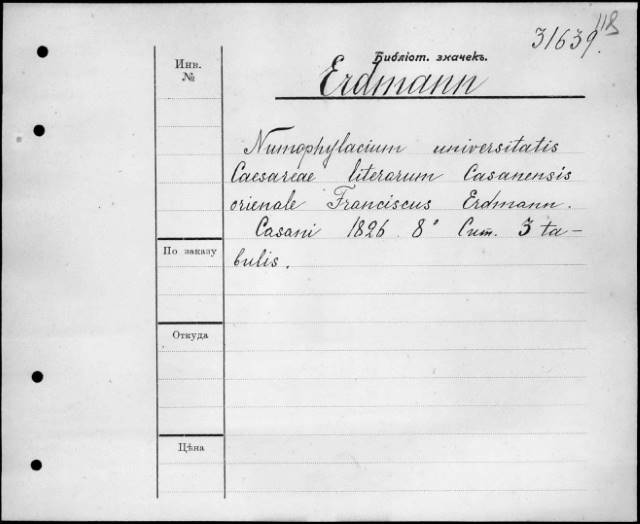 118
31639.
Инв.
№
Библіот. значекъ.
Erdmann
Numophylacium universitatis
Caesareae literarum Casanensis
orienale Franciscus Erdmann.
Casani 1826 8° Cum. 3 ta-
bulis.
По заказу
Откуда
Цѣна